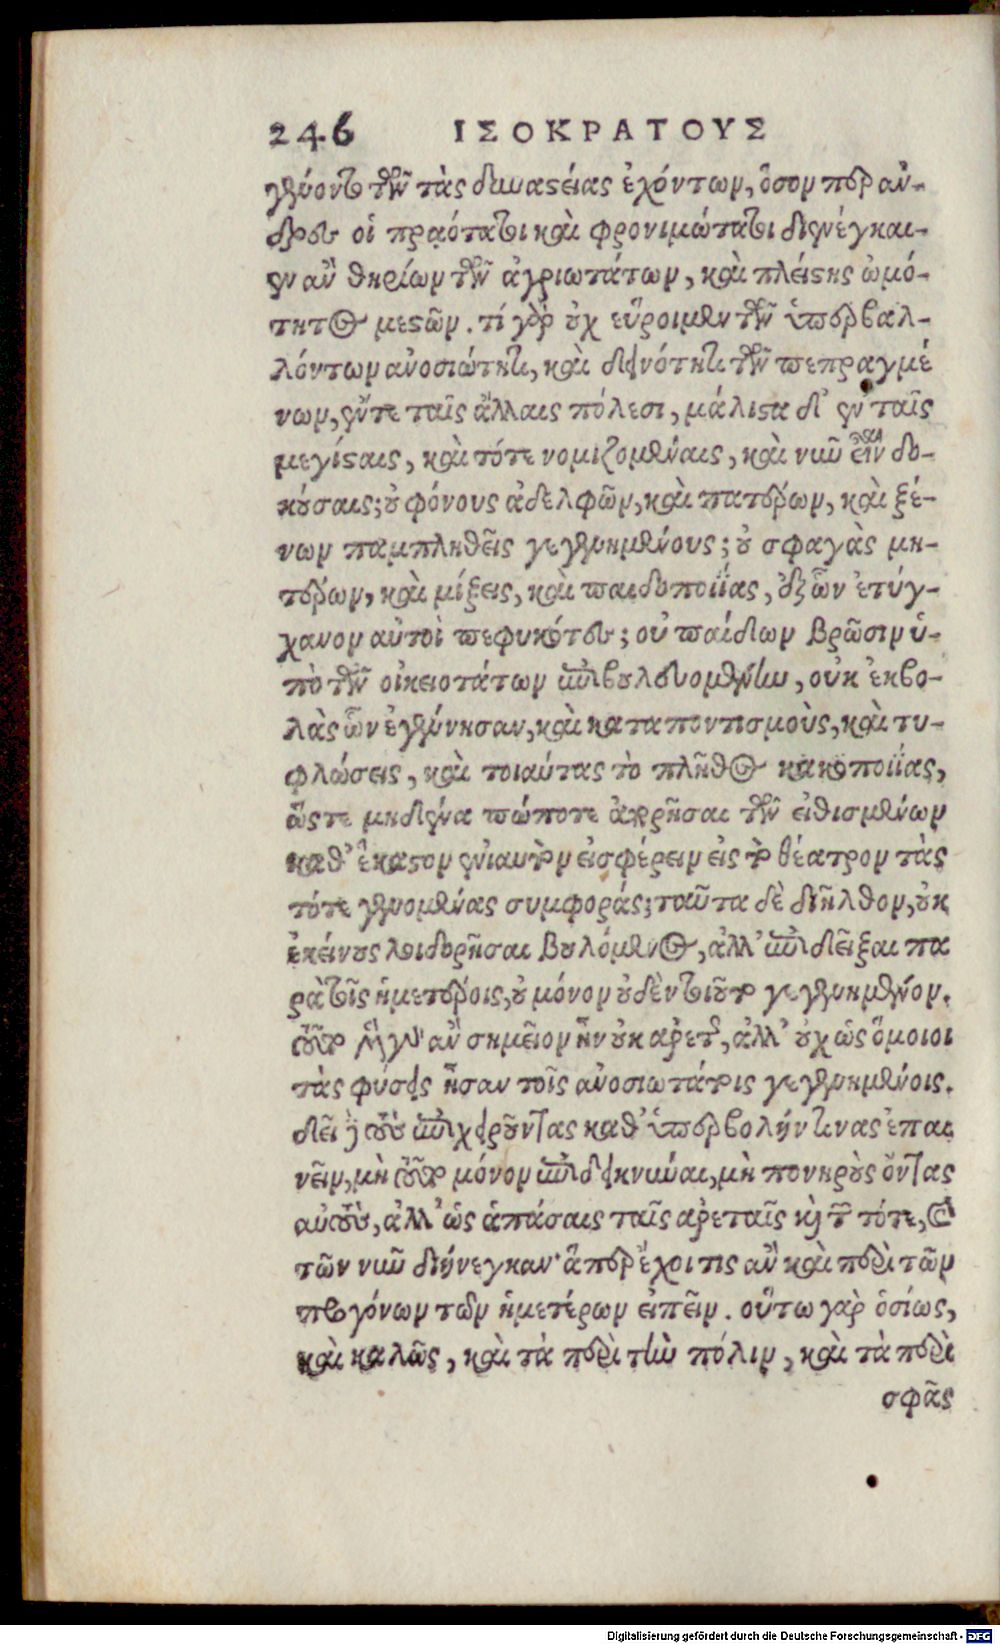 246 ΙΣΟΚΡΑΤΟΥΣ
γένοντο τῶν τὰς δυναστείας ἐχόντων, ὅσον περ ἄν-
δρες οἱ πραότατοι καὶ φρονιμώτατοι διενέγκαι-
εν ἂν θηρίων τῶν ἀγριωτάτων, καὶ πλείστης ὠμό-
τητος μεστῶν. τί γὰρ οὐχ εὕροιμεν τῶν ὑπερβαλ-
λόντων ἀνοσιώτητι, καὶ δεινότητι τῶν πεπραγμέ
νων, ἔντε ταῖς ἄλλαις πόλεσι, μάλιστα δ' ἐν ταῖς
μεγίσταις, καὶ τότε νομιζομέναις, καὶ νῦν εἶναι δο-
κούσαις; οὐ φόνους ἀδελφῶν, καὶ πατέρων, καὶ ξέ-
νων παμπληθεῖς γεγενημένους; οὐ σφαγὰς μη-
τέρων, καὶ μίξεις, καὶ παιδοποιΐας, ἐξ ὧν ἐτύγ-
χανον αὐτοὶ πεφυκότες; οὐ παίδων βρῶσιν ὑ-
πὸ τῶν οἰκειοτάτων ἐπιβουλευομένην, οὐκ ἐκβο-
λὰς ὧν ἐγέννησαν, καὶ καταποντισμοὺς, καὶ τυ-
φλώσεις, καὶ τοιαύτας τὸ πλῆθος κακοποιΐας,
ὥστε μηδένα πώποτε ἀπορῆσαι τῶν εἰθισμένων
καθ' ἕκαστον ἐνιαυτὸν εἰσφέρειν εἰς τὸ θέατρον τὰς
τότε γενομένας συμφοράς; ταῦτα δὲ διῆλθον, οὐκ
ἐκείνους λοιδορῆσαι βουλόμενος, ἀλλ' ἐπιδεῖξαι πα
ρὰ τοῖς ἡμετέροις, οὐ μόνον οὐδὲν τοιοῦτο γεγενημένον.
τοῦτο μὲν γὰρ ἂν σημεῖον ἦν οὐκ ἀρετῆς, ἀλλ' οὐχ ὡς ὅμοιοι
τὰς φύσεις ἦσαν τοῖς ἀνοσιωτάτοις γεγενημένοις.
δεῖ δὲ τοὺς ἐπιχειροῦντας καθ' ὑπερβολήν τινας ἐπαι
νεῖν, μὴ τοῦτο μόνον ἐπιδεικνύναι, μὴ πονηροὺς ὄντας
αὐτοὺς, ἀλλ' ὡς ἁπάσαις ταῖς ἀρεταῖς καὶ τῶν τότε, καὶ
τῶν νῦν διήνεγκαν· ἅπερ ἔχοι τις ἂν καὶ περὶ τῶν
προγόνων τῶν ἡμετέρων εἰπεῖν. οὕτω γὰρ ὁσίως,
καὶ καλῶς, καὶ τὰ περὶ τὴν πόλιν, καὶ τὰ περὶ
σφᾶς
Digitalisierung gefördert durch die Deutsche Forschungsgemeinschaft - DFG